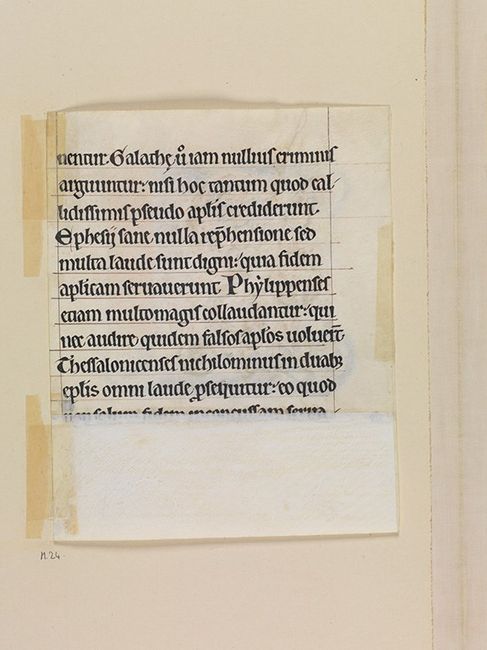 nentur. Galathę ũ iam nullius criminis
arguuntur: nisi hoc tantum quod cal-
lidissimis pseudo aplis crediderunt.
Ephesij sane nulla rep̃hensione sed
multa laude sunt digni: quia fidem
aplicam seruauerunt. Phylippenses
etiam multomagis collaudantur: qui
nec audire quidem falsos aplos uoluer̃t.
Thessalonicenses nichilominus in duabꝫ
eplis omni laude ꝓsequitur: eo quod
non solum fidem inconcussam serua
n. 24